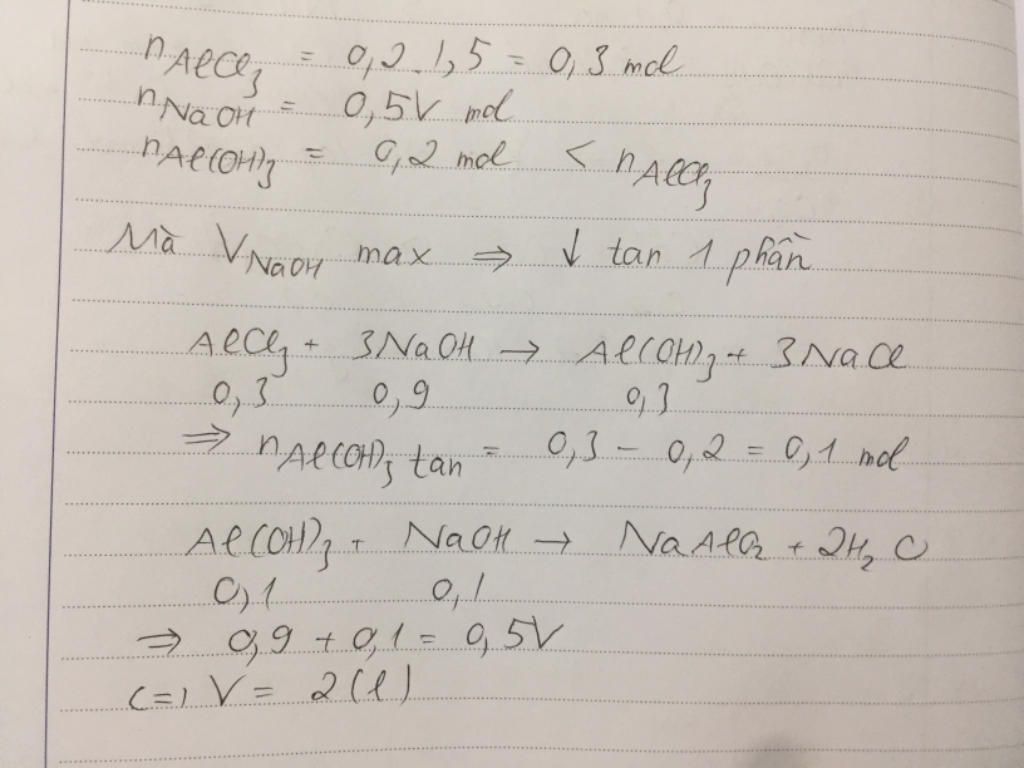 nAlCl₃ = 0,2.1,5 = 0,3 mol
nNaOH = 0,5V mol
nAl(OH)₃ = 0,2 mol < nAlCl₃
Mà VNaOH max ⇒ ↓ tan 1 phần
AlCl₃ + 3NaOH → Al(OH)₃ + 3NaCl
0,3 0,9 0,3
⇒ nAl(OH)₃ tan = 0,3 - 0,2 = 0,1 mol
Al(OH)₃ + NaOH → NaAlO₂ + 2H₂O
0,1 0,1
⇒ 0,9 + 0,1 = 0,5V
(=) V = 2(l)